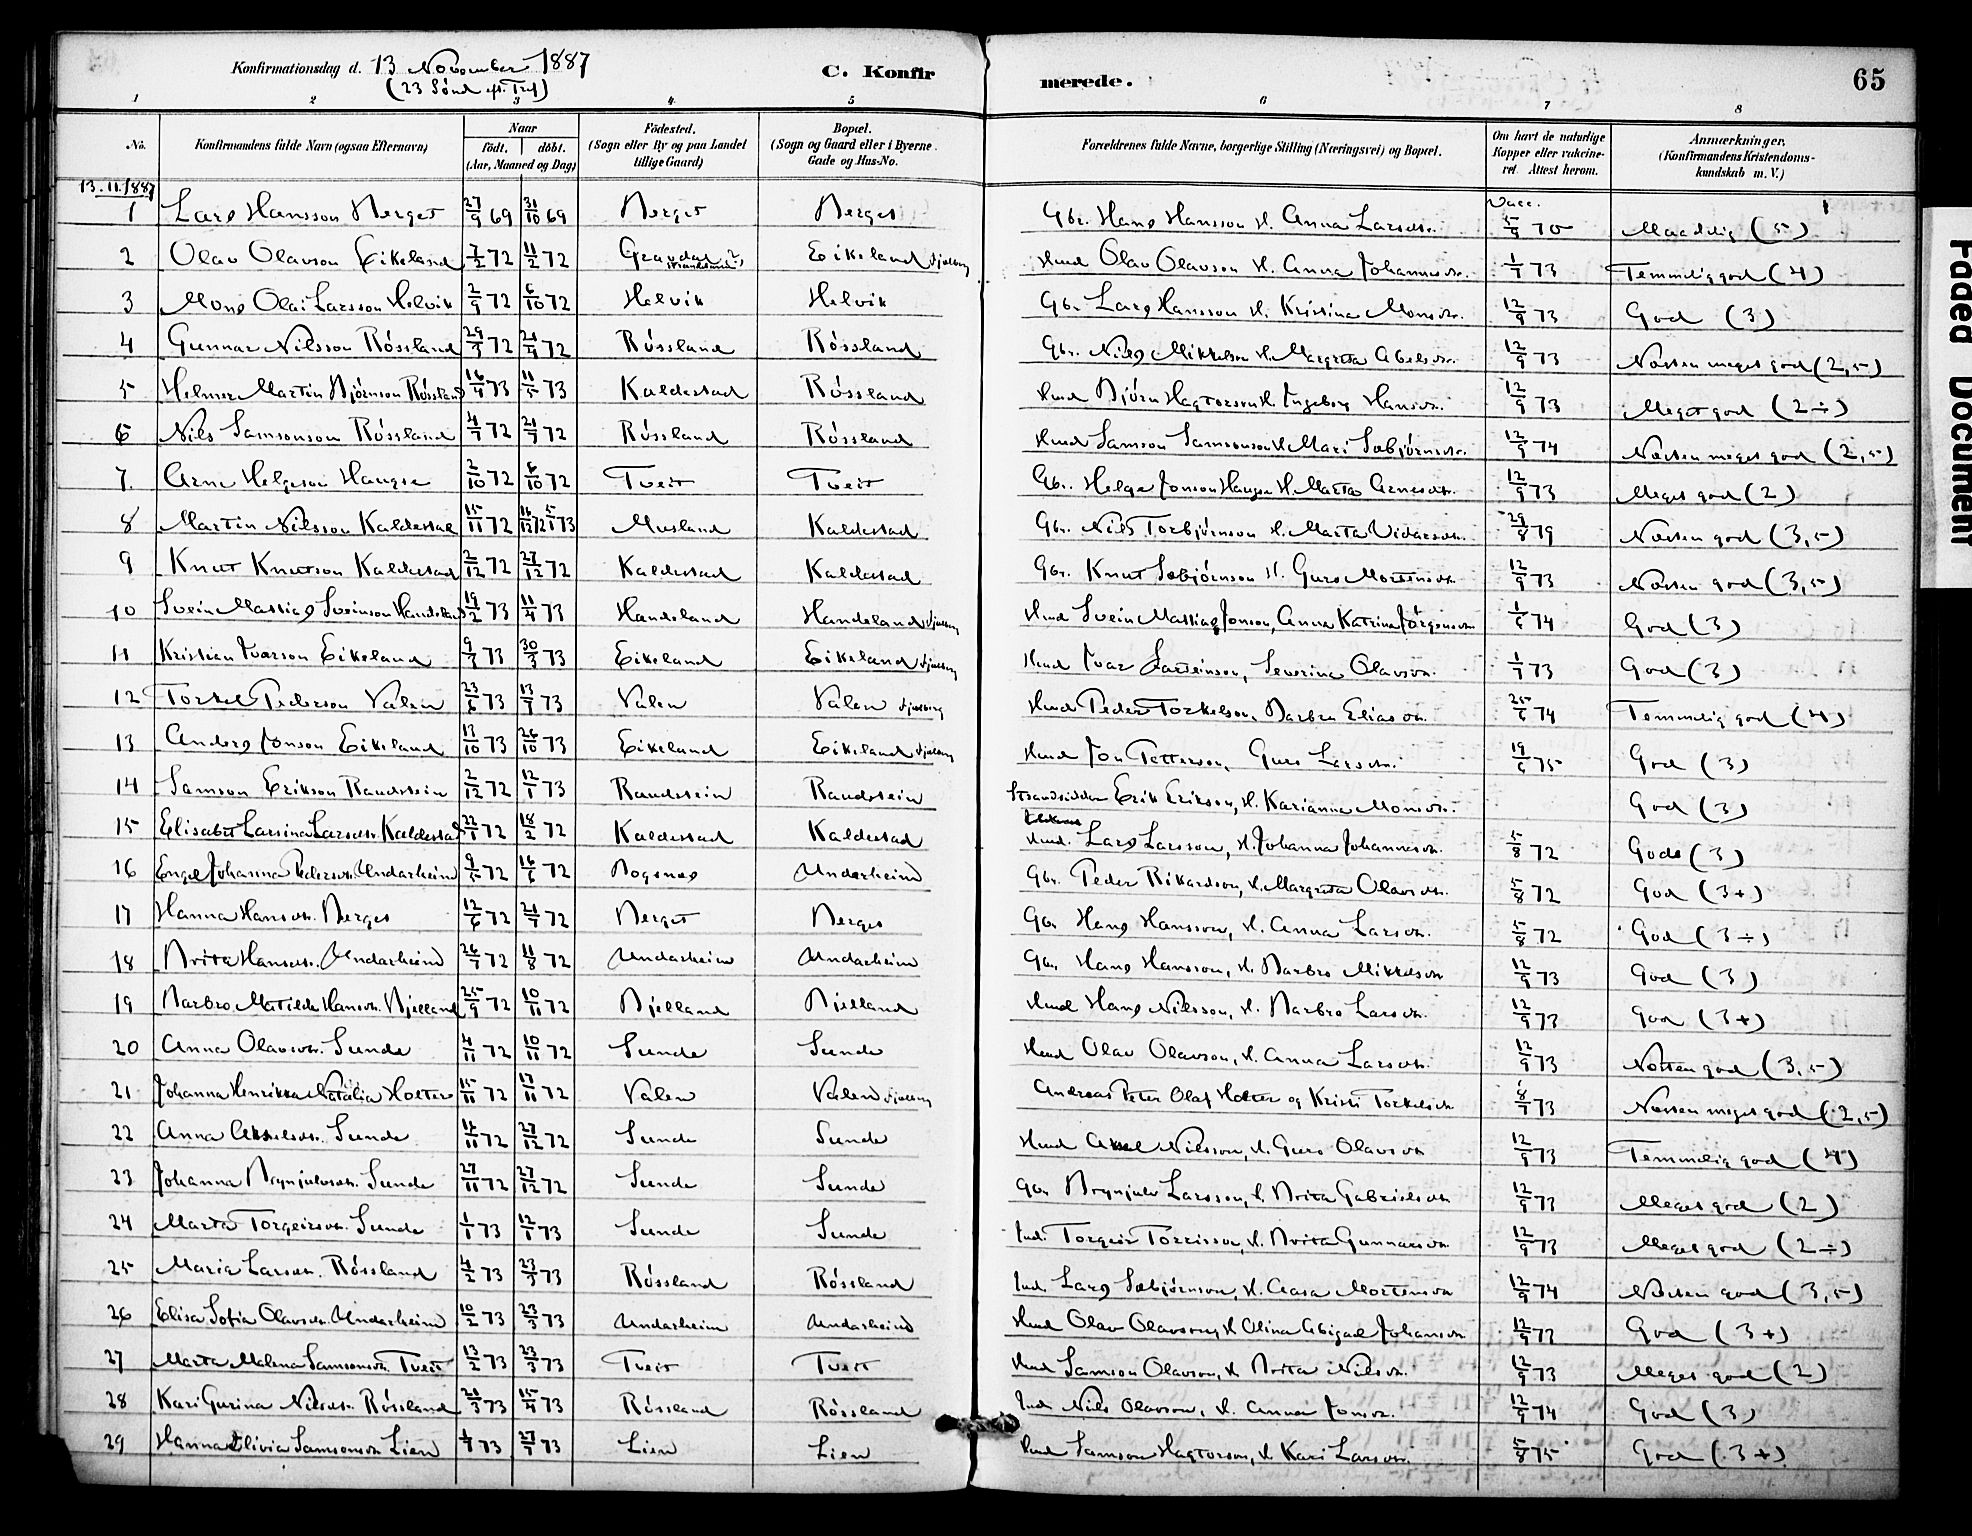 Konfirmationsdag d. 13 November 1887
(23 Sönd eft. Tref)
C. Konfir
merede.
65
1 2 3 4 5 6 7 8
No.
Konfirmandens fulde Navn (ogsaa Efternavn)
Naar
födt. döbt.
(Aar, Maaned og Dag)
Födested.
(Sogn eller By og paa Landet tillige Gaard)
Bopæl.
(Sogn og Gaard eller i Byerne Gade og Hus-No.
Forældrenes fulde Navne, borgerlige Stilling (Næringsvei) og Bopæl.
Om havt de naturlige Kopper eller vakcineret. Attest herom.
Anmærkninger.
(Konfirmandens Kristendomskundskab m. V.)
13.11.1887
Vacc.
1 Lars Hansson Berget 27/9 69 31/10 69 Berget Berget Gbr. Hans Hansson H. Anna Larsdtr. 5/9 70 Maadelig (5)
2 Olav Olavson Eikeland 7/2 72 11/2 72 Eikeland Hmd Olav Olavson H. Anna Johannesdtr. 1/7 73 Temmelig god (4)
3 Mons Olai Larsson Helvik 2/9 72 6/10 72 Helvik Helvik Gbr. Lars Hansson H. Kristina Monsdtr. 12/9 73 God (3)
4 Gunnar Nilsson Rössland 72 72 Rössland Rössland Gbr. Nils Mikkelson H. Margreta Abelsdtr. 12/9 73 Næsten meget god (2,5)
5 Helmer Martin Björnson Rössland 16/4 73 11/5 73 Kaldestad Rössland Hmd Björn Hagtorson H. Ingeborg Hansdtr. 12/9 73 Meget god (2÷)
6 Nils Samsonson Rössland 4/7 72 21/7 72 Rössland Rössland Hmd Samson Samsonson H. Mari Sæbjörnsdtr. 12/9 74 Næsten meget god (2,5)
7. Arne Helgeson Haugse 2/10 72 6/10 72 Tveit Tveit Gbr. Helge Jonson Haugse H. Marta Arnesdtr. 12/9 73 Meget god (2)
8 Martin Nilsson Kaldestad 15/11 72 16/12 72 5/1 73 Musland Kaldestad Gbr. Nils Torbjörnson H. Marta Vidarsdtr. 29/8 79 Næsten god (3,5)
9 Knut Knutson Kaldestad 2/12 72 27/12 72 Kaldestad Kaldestad Gbr. Knut Sæbjörnson H. Guro Mortensdtr 12/9 73 Næsten god (3,5)
10 Svein Mattias Sveinson Handeland 19/2 73 11/4 73 Handeland Handeland Hmd Svein Mattias Jonson, Anna Katrina Jörgensdtr 1/6 74 God (3)
11 Kristian Ivarson Eikeland 73 30/3 73 Eikeland Eikeland Hmd Ivar, Severina Olavsdtr. 1/7 73 God (3)
12 Torkel Pederson Valen 23/6 73 13/7 73 Valen Valen Hmd Peder Torkelson, Barbra Eliasdtr. 25/6 74 Temmelig god (4)
13 Anders Jonson Eikeland 13/10 73 26/10 73 Eikeland Eikeland Hmd Jon Petterson, Guro Larsdtr. 19/6 75 God (3)
14 Samson Erikson Raudstein 2/12 72 12/1 73 Raudstein Raudstein Strandsidder Erik Erikson, H. Karianna Monsdtr. God (3)
15 Elisabet Larsina Larsdtr. Kaldestad 22/1 72 18/2 72 Kaldestad Kaldestad Hmd. Lars Larsson, H. Johanna Johannesdtr. 5/8 72 Gods (3)
16 Engel Johanna Pedersdtr. Undarheim 9/5 72 16/6 72 Bogsnes Undarheim Gbr. Peder Rikardson, H. Margreta Olavsdtr. 5/8 72 God (3+)
17 Hanna Hansdtr. Berget 12/6 72 21/7 72 Berget Berget Gbr Hans Hansson, H. Anna Larsdtr. 5/8 72 God (3÷)
18 Brita Hansdtr. Undarheim 26/7 72 11/8 72 Undarheim Undarheim Gbr. Hans Hansson, H. Barbro Mikkelsdtr 12/9 73 God (3)
19 Barbro Matilda Hansdtr. Bjelland 25/9 72 10/11 72 Bjelland Bjelland Hmd Hans Nilsson, H. Barbro Larsdtr. 12/9 73 God (3+)
20 Anna Olavsdtr. Sunde 4/11 72 10/11 72 Sunde Sunde Hmd Olav Olavson, H. Anna Larsdtr. 12/9 73 Næsten god (3,5)
21 Johanna Henrikka Natalia Holter 15/11 72 17/11 72 Valen Valen Andreas Peter Olaf Holter og Kristi Torkelsdtr 8/7 73 Næsten meget god (2,5)
22 Anna Akselsdtr. Sunde 72 27/12 72 Sunde Sunde Hmd Aksel Nilsson, H. Guro Olavsdtr 12/9 73 Temmelig god (4)
23 Johanna Brynjulvsdtr. Sunde 27/11 72 27/12 72 Sunde Sunde Gbr Brynjulv Larsson, H. Brita Gabrielsdtr 12/9 73 Meget god (2)
24 Marta Torgeirsdtr. Sunde 1/1 73 12/1 73 Sunde Sunde Ind. Torgeir Torrisson, H. Brita Gunnarsdtr 12/9 73 Meget god (2÷)
25 Maria Larsdtr. Rössland 4/2 73 23/3 73 Rössland Rössland Ind. Lars Sæbjörnson, H. Aasa Mortensdtr 12/9 74 Næsten god (3,5)
26 Elisa Sofia Olavsdtr. Undarheim 10/2 73 23/3 73 Undarheim Undarheim Hmd Olav Olavson, H. Olina Abigael Johansdtr 12/9 God (3+)
27 Marta Malena Samsonsdtr. Tveit 13/2 73 23/3 73 Tveit Tveit Hmd Samson Olavson, H. Brita Nilsdtr. 12/9 73 Meget god (2)
28 Kari Gurina Nilsdtr. Rössland 21/3 73 15/4 73 Rössland Rössland Ind Nils Olavson, H. Anna Jonsdtr. 12/9 74 God (3)
29 Hanna Olivia Samsonsdtr Lien 73 27/7 73 Lien Lien Hmd Samson Hagtorson, H. Kari Larsdtr. 5/8 75 God (3+)
Faded Document